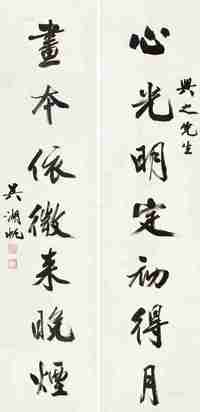 心光明定初得月
興之先生
畫本依微來晚煙
吴湖帆